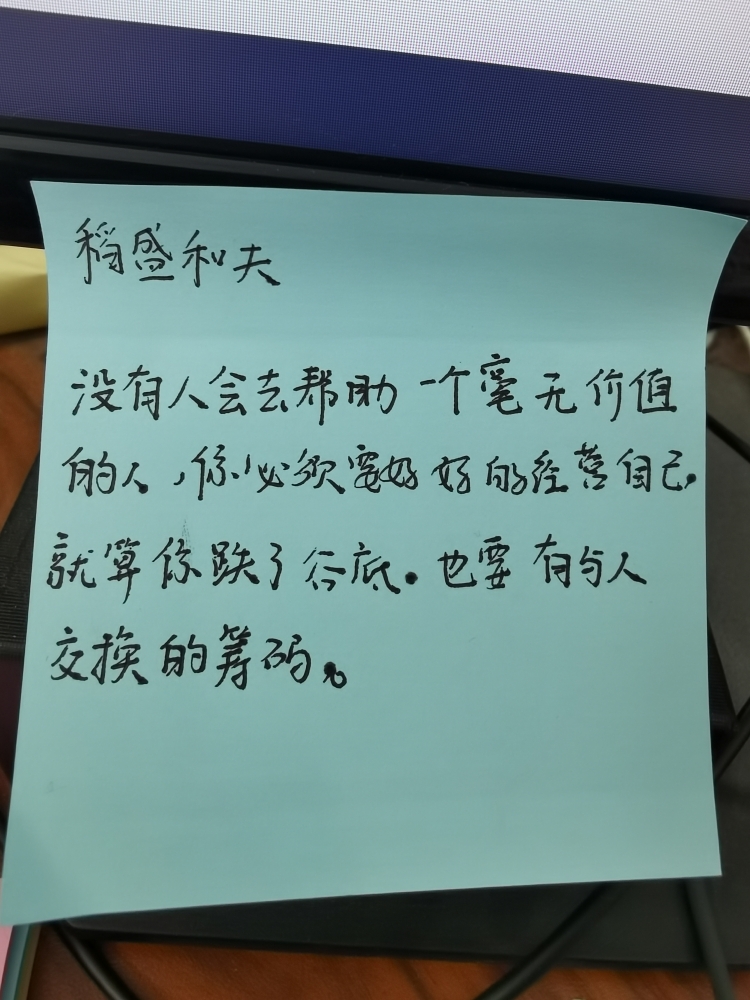 稻盛和夫
没有人会去帮助一个毫无价值
的人,你必须要好好的经营自己.
就算你跌了谷底.也要有与人
交换的筹码。